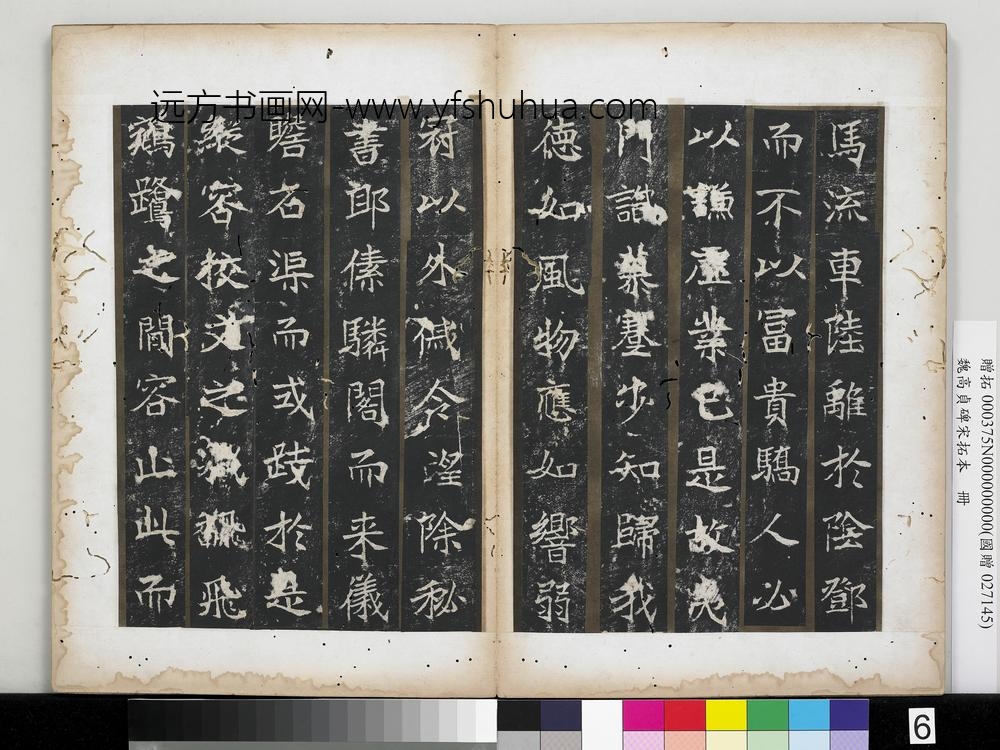 远方书画网-www.yfshuhua.com
馬流車陸離於陰鄧
而不以富貴驕人必
以謙虛業已是故夷
門識慕蹇步知歸我
德如風物應如響弱
冠以外戚令望除秘
書郎傃驎閣而来儀
瞻石渠而式踐於是
縱容校文之職翻飛
鵷鷺之間容止此而
贈拓 000375N000000000(國贈 027145)
魏高貞碑宋拓本 冊
6